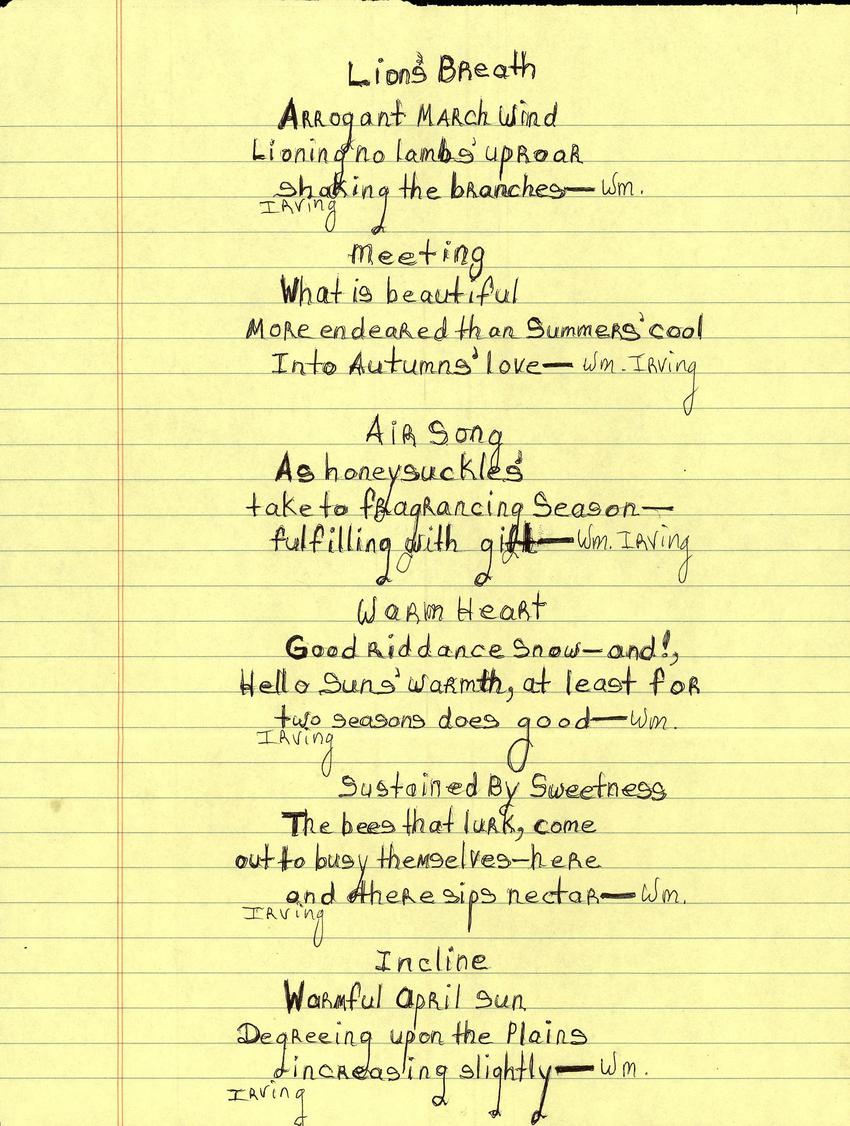 Lions' Breath
Arrogant March Wind
Lioning no lambs' uproar
shaking the branches— Wm.
Irving
Meeting
What is beautiful
More endeared than Summers' cool
Into Autumns' love— Wm. Irving
Air Song
As honeysuckles'
take to fragrancing Season—
fulfilling with gift— Wm. Irving
Warm Heart
Good riddance Snow—and!,
Hello Suns' warmth, at least for
two seasons does good— Wm.
Irving
Sustained By Sweetness
The bees that lurk, come
out to busy themselves—here
and there sips nectar— Wm.
Irving
Incline
Warmful April sun
Degreeing upon the Plains
increasing slightly— Wm.
Irving